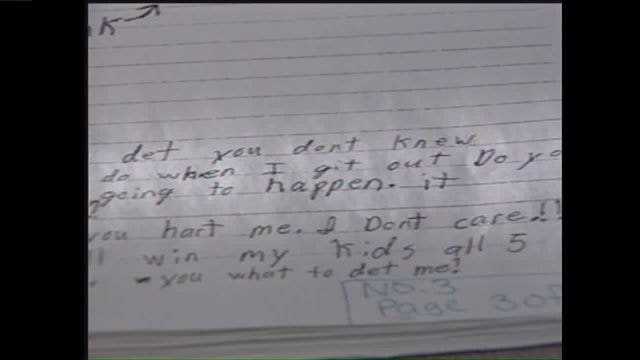 K
det you dont knew
do when I git out Do yo
going to happen. it
you hart me. I Dont care.!!
win my Kids all 5
- you what to det me?
NO.3
Page 3 of